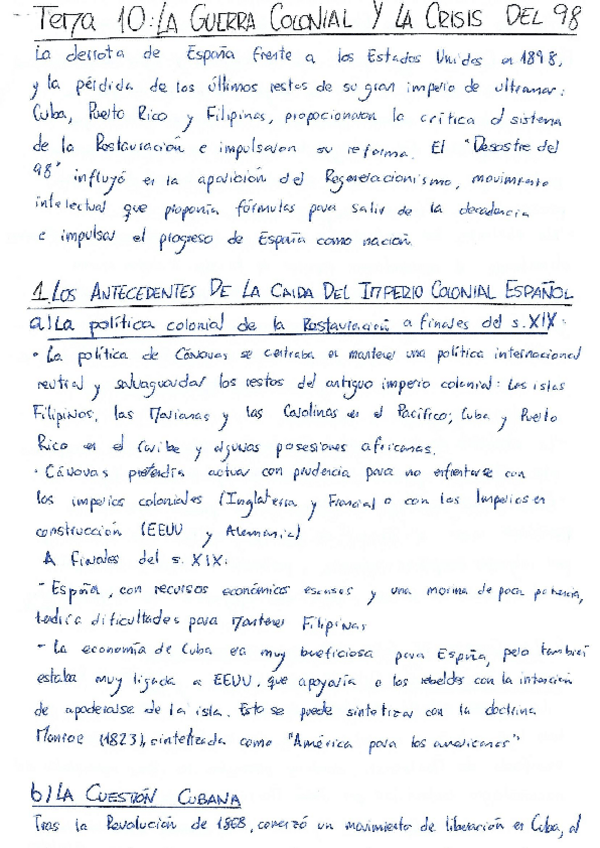 Tema 10: LA GUERRA COLONIAL Y LA CRISIS DEL 98
La derrota de España frente a los Estados Unidos en 1898,
y la pérdida de los últimos restos de su gran imperio de ultramar:
Cuba, Puerto Rico y Filipinas, propocionaron la crítica al sistema
de la Restauración e impulsaron su reforma. El "Desastre del
98" influyó en la aparición del Regeneracionismo, movimiento
intelectual que proponía fórmulas para salir de la decadencia
e impulsar el progreso de España como nación.
1. LOS ANTECEDENTES DE LA CAIDA DEL IMPERIO COLONIAL ESPAÑOL
a) La política colonial de la Restauración a finales del s. XIX:
• La política de Cánovas se centraba en mantener una política internacional
neutral y salvaguardar los restos del antiguo imperio colonial: Las islas
Filipinas, las Marianas y las Carolinas en el Pacífico; Cuba y Puerto
Rico en el Caribe y algunas posesiones africanas.
• Cánovas pretendía actuar con prudencia para no enfrentarse con
los imperios coloniales (Inglaterra y Francia) o con los Imperios en
construcción (EEUU y Alemania)
A finales del s. XIX:
- España, con recursos económicos escasos y una marina de poca potencia,
tendría dificultades para mantener Filipinas
- La economía de Cuba era muy beneficiosa para España, pero también
estaba muy ligada a EEUU, que apoyaría a los rebeldes con la intención
de apoderarse de la isla. Esto se puede sintetizar con la doctrina
Monroe (1823), sintetizada como "América para los americanos"
b) LA CUESTIÓN CUBANA
Tras la Revolución de 1868, comenzó un movimiento de liberación en Cuba, al